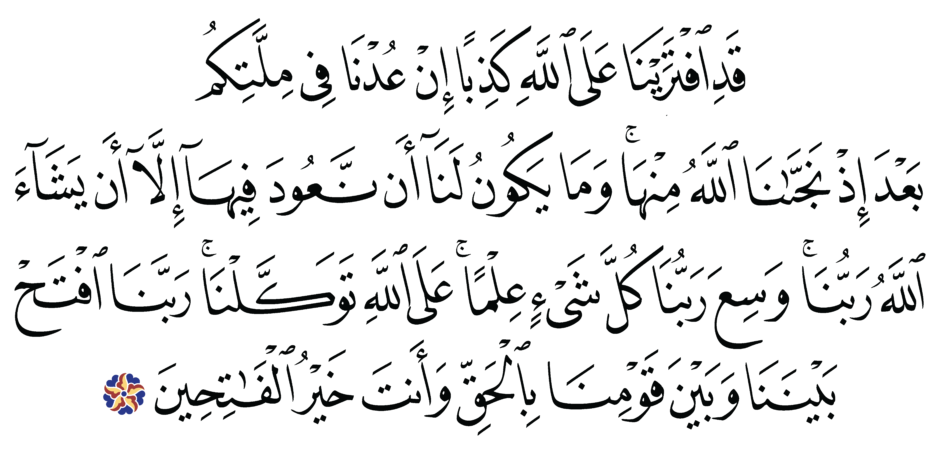 قَدِ ٱفْتَرَيْنَا عَلَى ٱللَّهِ كَذِبًا إِنْ عُدْنَا فِى مِلَّتِكُم
بَعْدَ إِذْ نَجَّىٰنَا ٱللَّهُ مِنْهَا ۚ وَمَا يَكُونُ لَنَآ أَن نَّعُودَ فِيهَآ إِلَّآ أَن يَشَآءَ
ٱللَّهُ رَبُّنَا ۚ وَسِعَ رَبُّنَا كُلَّ شَىْءٍ عِلْمًا ۚ عَلَى ٱللَّهِ تَوَكَّلْنَا ۚ رَبَّنَا ٱفْتَحْ
بَيْنَنَا وَبَيْنَ قَوْمِنَا بِٱلْحَقِّ وَأَنتَ خَيْرُ ٱلْفَٰتِحِينَ